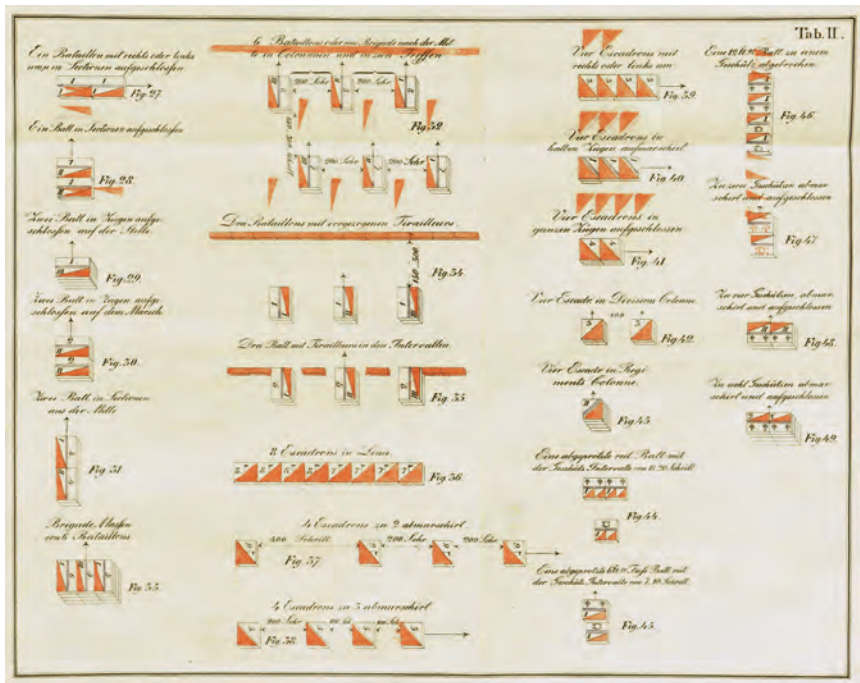 Tab. II.
Ein Bataillon mit rechts oder links
um in Sectionen aufgeschlossen
Fig. 27.
Ein Batt in Sectionen aufgeschlossen
Fig. 28.
Zwei Batt in Zügen aufge-
schlossen auf der Stelle.
Fig. 29.
Zwei Batt in Zügen aufge
schlossen auf dem Marsch.
Fig. 30.
Zwei Batt in Sectionen
aus der Mitte
Fig. 31
Brigade Massen
von 6 Bataillons
Fig. 33
6 Bataillons oder eine Brigade nach der Mit
te in Colonnen und in zwei Treffen
200 Schr
200 Schr
Fig. 32
200 Schr
200 Schr
Drei Bataillons mit vorgezogenen Tirailleurs.
Fig. 34
Drei Batt mit Tirailleurs in den Intervallen.
Fig. 35
8 Escadrons in Linie.
Fig. 36.
4 Escadrons zu 2 abmarschirt.
400 Schritt
200 Schr
200 Schr
Fig. 37
4 Escadrons zu 3 abmarschirt.
200 Schr
Fig. 38.
Vier Escadrons mit
rechts oder links um
Fig. 39.
Vier Escadrons in
halben Zügen aufmarschirt.
Fig. 40.
Vier Escadrons in
ganzen Zügen aufgeschlossen
Fig. 41.
Vier Escadr in Divisions Colonne.
Fig. 42.
Vier Escadr in Regi
ments Colonne.
Fig. 43.
Eine abgeprotzte reit Batt mit
der Geschütz Intervalle von 18. 20 Schritt.
Fig. 44.
der Geschütz Intervalle von
Fig. 45.
Batt zu einem
Geschütz abgebrochen.
Fig. 46.
Zu zwei Geschützen abmar
schirt und aufgeschlossen
Fig. 47
Zu vier Geschützen abmar
schirt und aufgeschlossen
Fig. 48.
Zu acht Geschützen abmar
schirt und aufgeschlossen
Fig. 49.